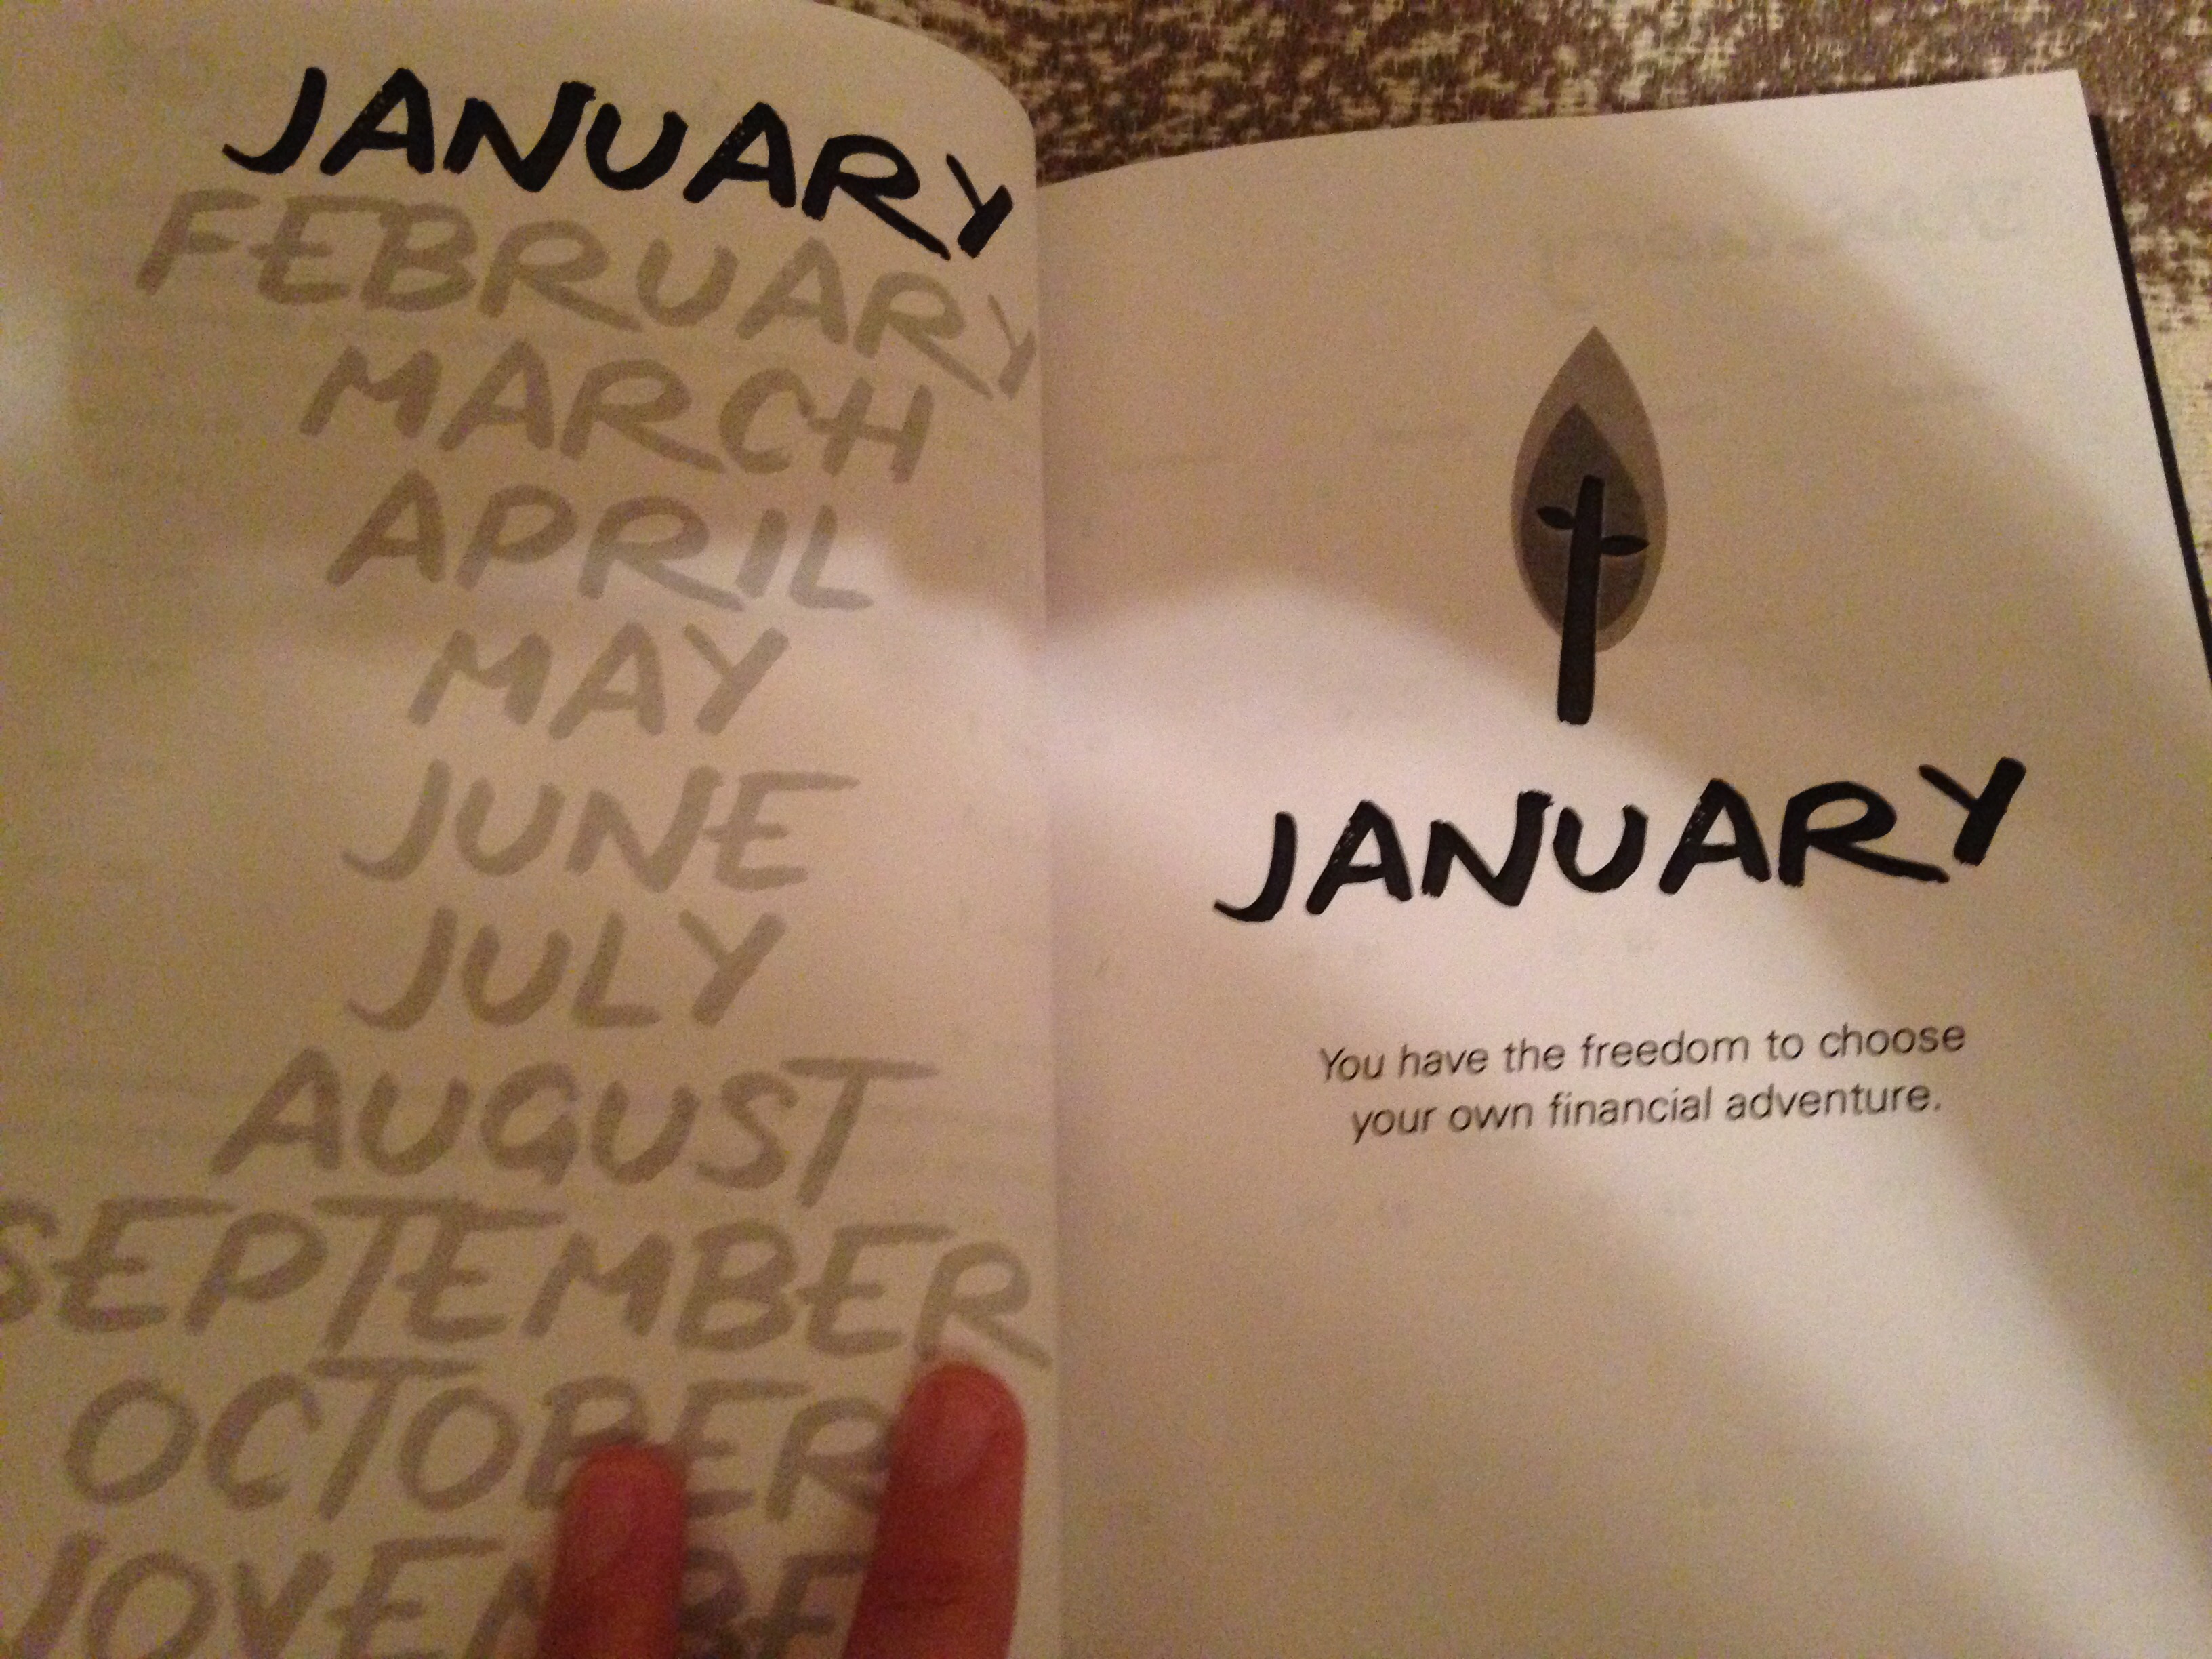 JANUARY
FEBRUARY
MARCH
APRIL
MAY
JUNE
JULY
AUGUST
SEPTEMBER
OCTOBER
NOVEMBER
JANUARY
You have the freedom to choose
your own financial adventure.